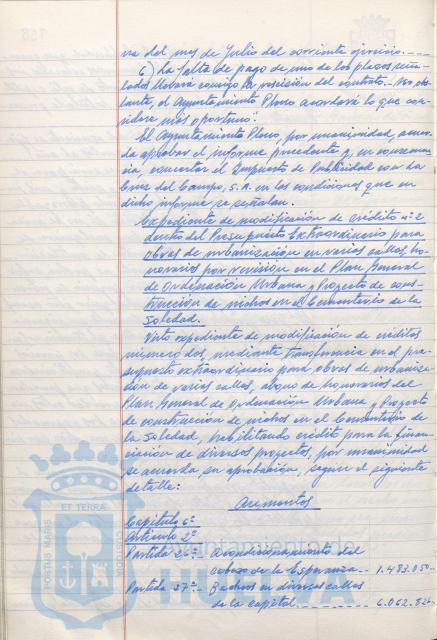 va del mes de Julio del corriente ejercicio.
6) La falta de pago de uno de los plazos seña-
lados llevará consigo la rescisión del contrato.- No obs-
tante, el Ayuntamiento Pleno acordará lo que con-
sidere más oportuno".
El Ayuntamiento Pleno, por unanimidad, acuer-
da aprobar el informe precedente y, en consecuen-
cia, concertar el Impuesto de Publicidad con La
Cruz del Campo, S.A. en las condiciones que en
dicho informe se señalan.
Expediente de modificación de crédito nº 2
dentro del Presupuesto Extraordinario para
obras de urbanización en varias calles, ho-
norarios por revisión en el Plan General
de Ordenación Urbana y Proyecto de cons-
trucción de nichos en el Cementerio de la
Soledad.
Visto expediente de modificación de créditos
número dos, mediante transferencia en el pre-
supuesto extraordinario para obras de urbaniza-
ción de varias calles, abono de honorarios del
Plan General de Ordenación Urbana y Proyecto
de construcción de nichos en el Cementerio de
la Soledad, habilitando crédito para la finan-
ciación de diversos proyectos, por unanimidad
se acuerda su aprobación, según el siguiente
detalle:
Aumentos
Capítulo 6º
Artículo 2º
Partida 26ª.- Acondicionamiento del
cabezo de la Esperanza.- 1.483.050.-
Partida 27ª.- Bacheo en diversas calles
de la capital
PORTUS MARIS ET TERRAE CUSTODIA
Ayuntamiento de